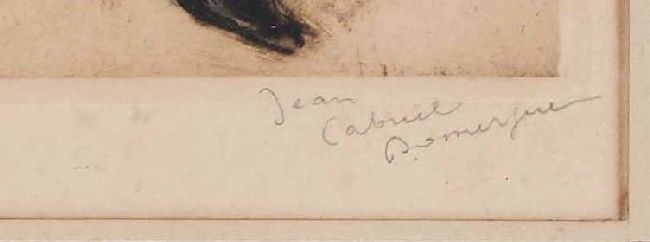 Jean
Gabriel
Domergue